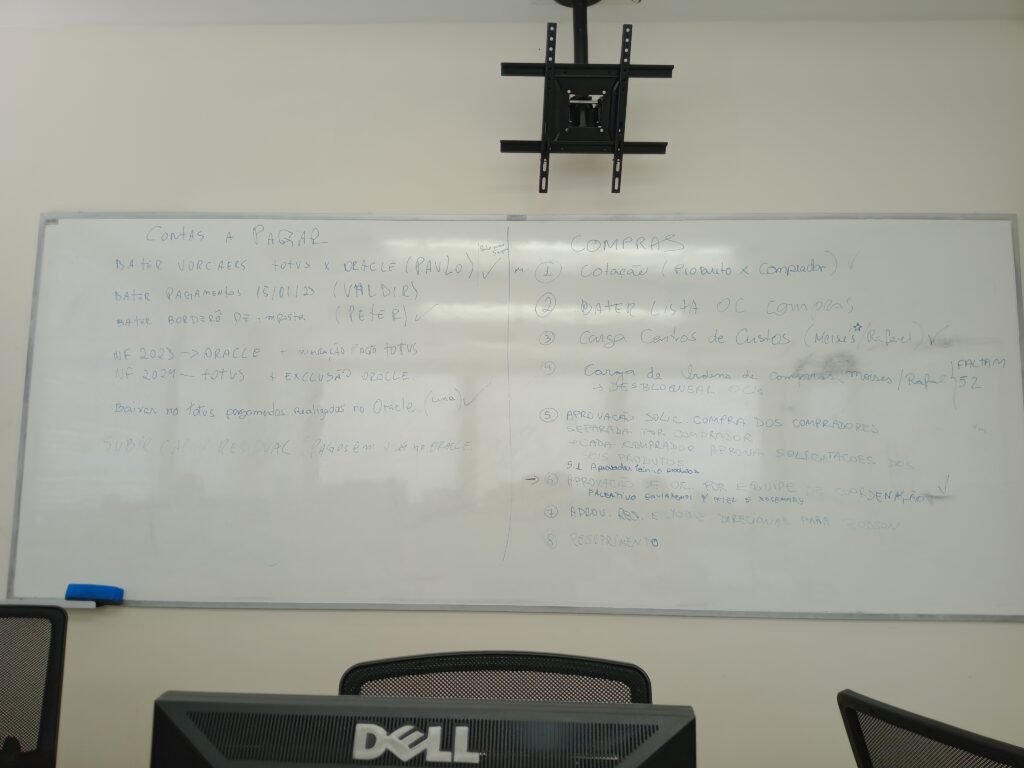 CONTAS A PAGAR
BATER TOTVS X ORACLE (PAVLO) ✓
BATER PAGAMENTOS 15/01/23 (VALDIR)
BATER BORDERÔ DE (PETER) ✓
NF 2023 → ORACLE + PAGO TOTVS
NF 2024 — TOTVS + EXCLUSÃO ORACLE
Baixar no Totvs pagamentos Realizados no Oracle ✓
SUBIR RESIDUAL ORACLE
COMPRAS
① Cotação (Produto x Comprador) ✓
② BATER LISTA OC COMPRAS
③ Carga Centros de Custos (Moisés / Rafael) ✓
④ Carga de Ordens de Compras Moises / Rafael
→ DESBLOQUEAR OCs
FALTAM
52
⑤ APROVAÇÃO SOLIC. COMPRA DOS COMPRADORES
SEPARADA POR COMPRADOR
CADA COMPRADOR APROVA SOLICITACOES DOS
SEUS PRODUTOS
5.1
→ ⑥ APROVAÇÃO DE OC POR EQUIPE DE COORDENAÇÃO
⑦ DIRECIONAR PARA ROBSON
⑧ RESUPRIMENTO
DELL